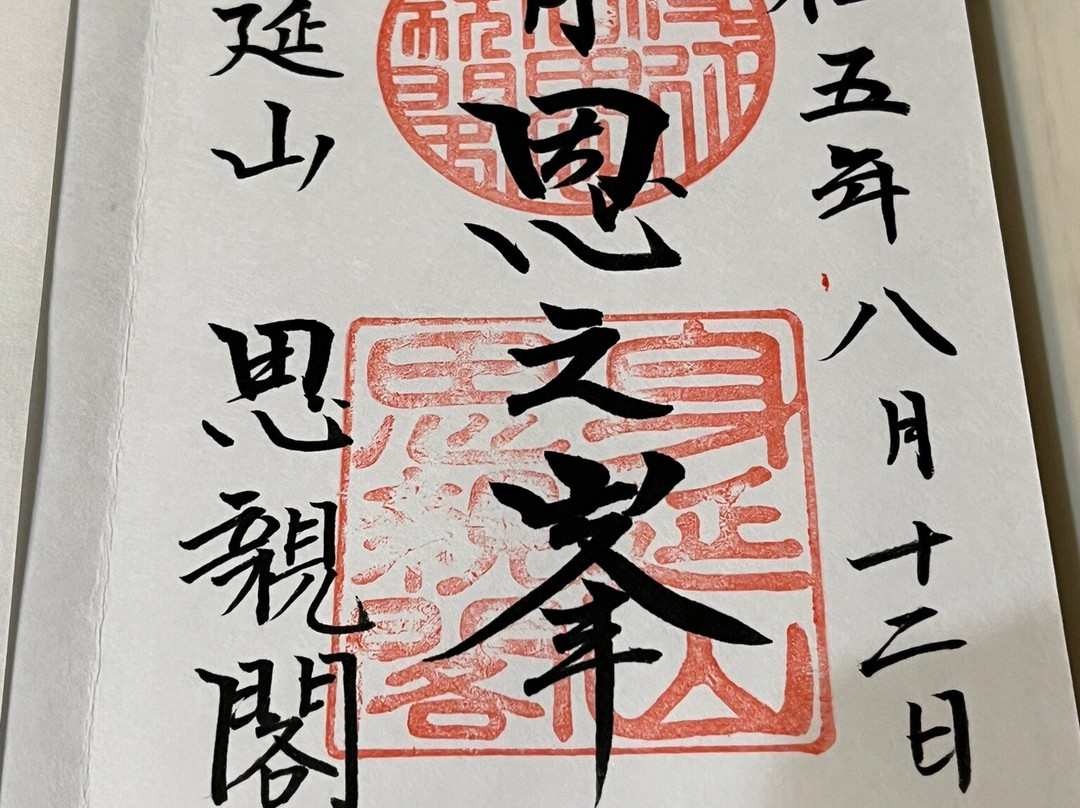 和五年八月十二日
恩之峯
延山
思親閣
身延山
思親閣